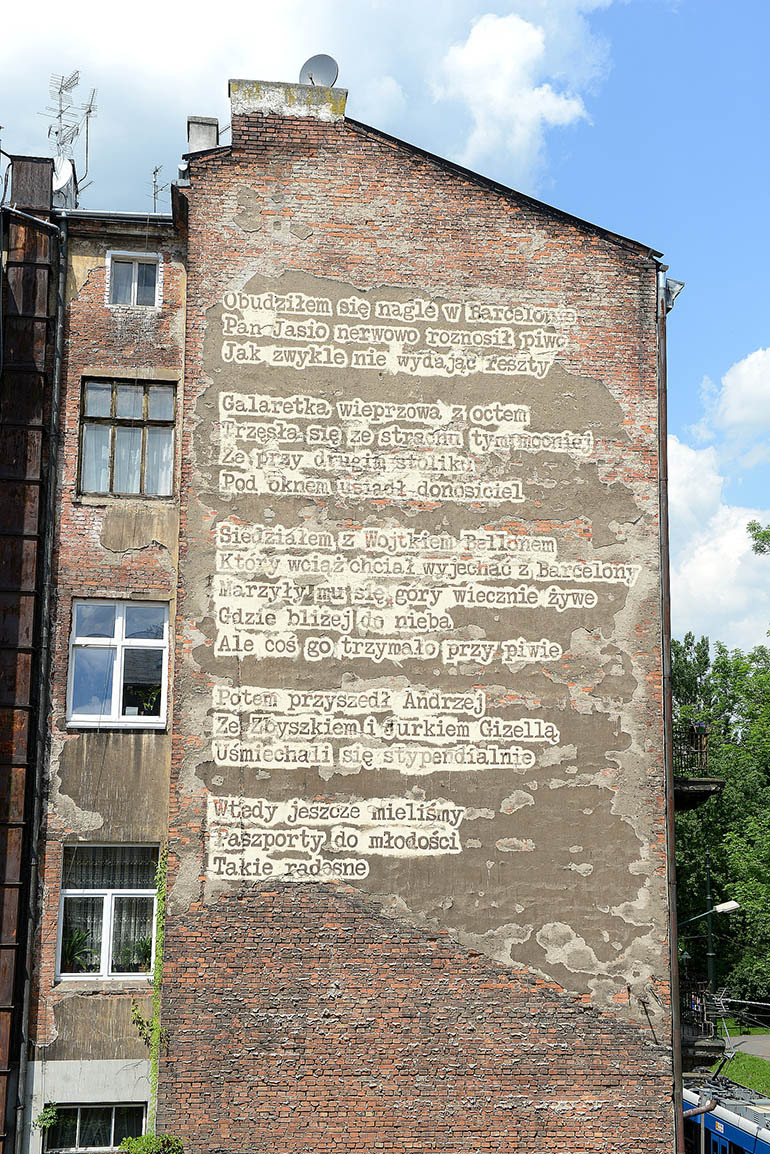 Obudziłem się nagle w Barcelonie
Pan Jasio nerwowo roznosił piwo
Jak zwykle nie wydając reszty
Galaretka wieprzowa z octem
Trzęsła się ze strachu tymmocniej
Że przy drugim stoliku
Pod oknem usiadł donosiciel
Siedziałem z Wojtkiem Bellonem
Który wciąż chciał wyjechać z Barcelony
Marzyły mu się góry wiecznie żywe
Gdzie bliżej do nieba
Ale coś go trzymało przy piwie
Potem przyszedł Andrzej
Ze Zbyszkiem i Jurkiem Gizellą
Uśmiechali się stypendialnie
Wtedy jeszcze mieliśmy
Paszporty do młodości
Takie radosne